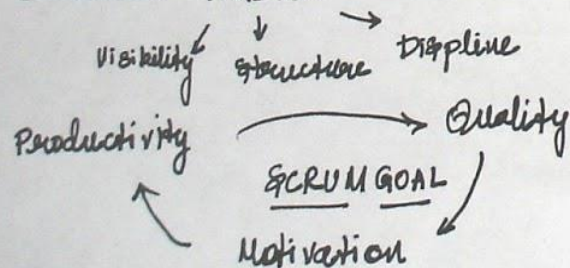 Visibility Structure Displine
Productivity Quality
SCRUM GOAL
Motivation